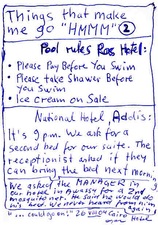 Things that make
me go "HMMM" 2
Pool rules Ras Hotel:
• Please Pay Before You Swim
• Please take Shower Before
You Swim
• Ice cream on Sale
National Hotel, Addis:
It's 9 pm. We ask for a
second bed for our suite. The
receptionist asked if they
can bring the bed next morning
We asked the MANAGER in
our hotel in Awassy for a 2nd
mosquito net. He said he would do
his best. We never heard from him again
"... could go on"